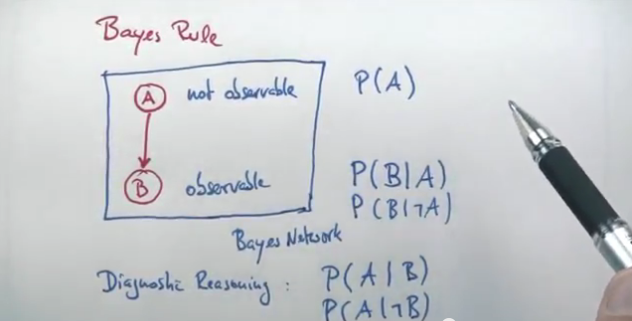 Bayes Rule
A not observable P(A)
B observable P(B|A)
P(B|¬A)
Bayes Network
Diagnostic Reasoning : P(A|B)
P(A|¬B)